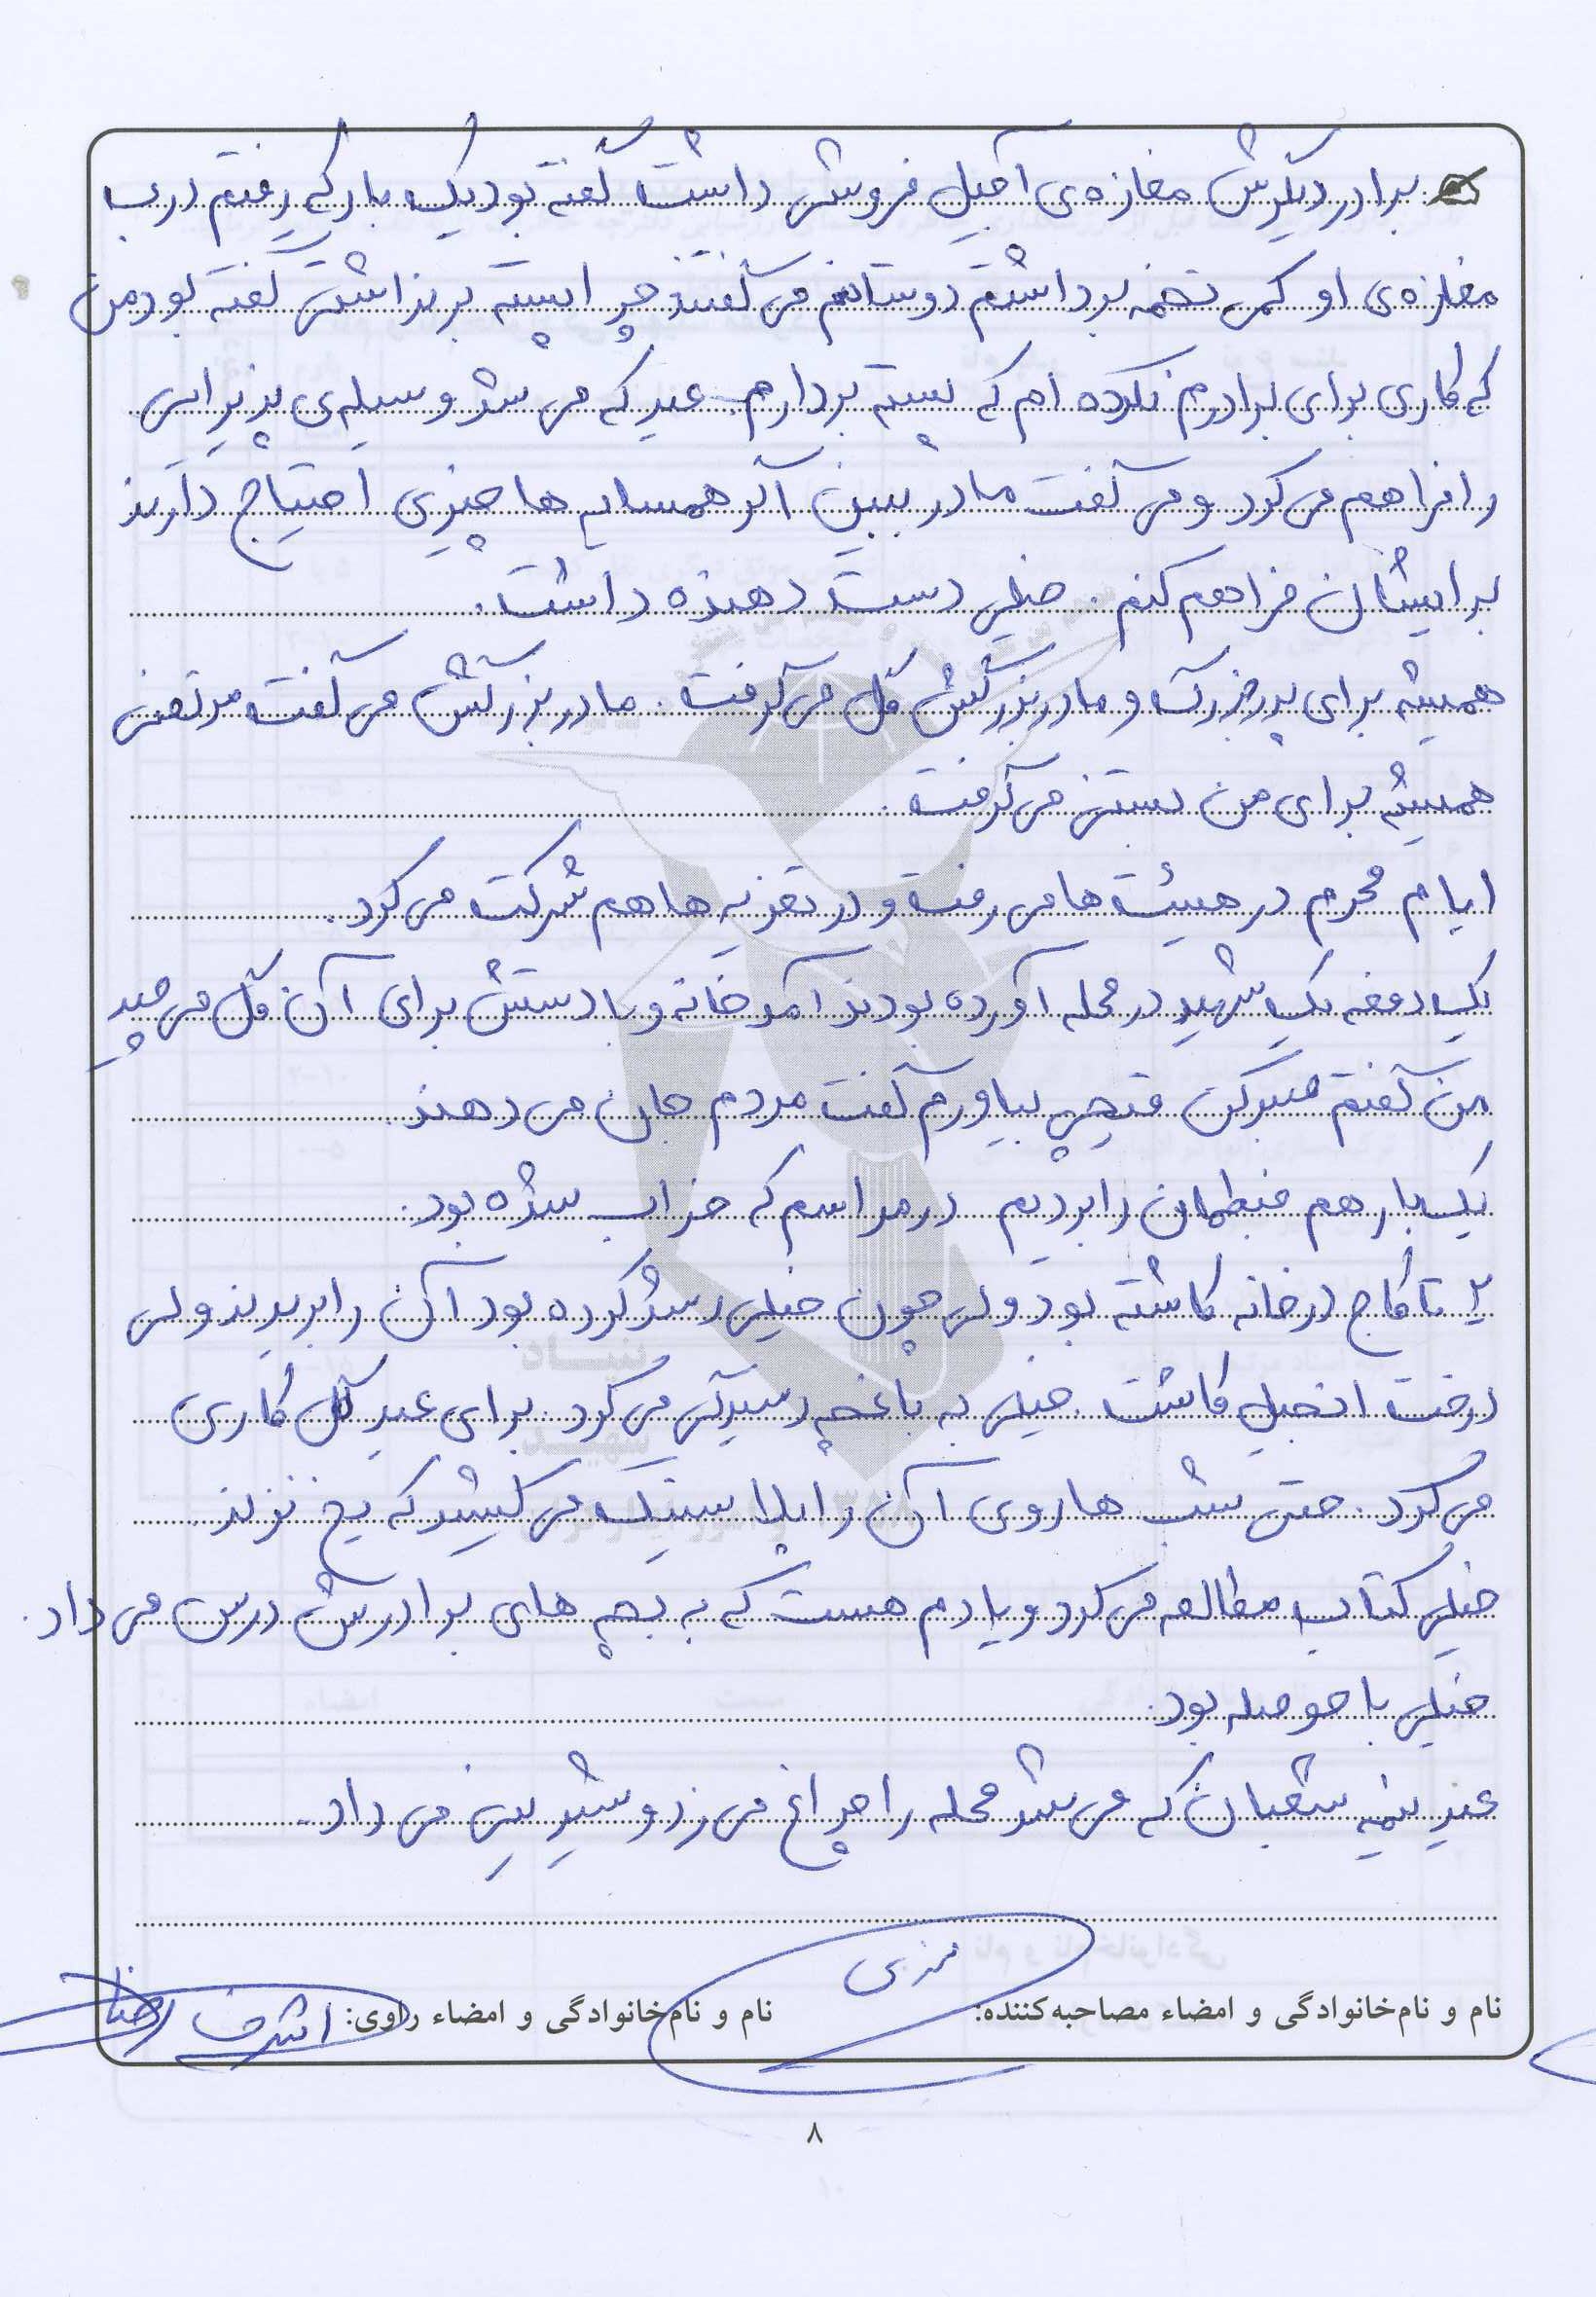 برادر دیگرش مغازه‌ی آجیل فروشی داشت گفته بود یک بار که رفتم درب
مغازه‌ی او کمی تخمه برداشتم دوستانم می گفتند چرا پسته برنداشتی گفته بود من
که کاری برای برادرم نکرده ام که پسته بردارم. عید که می شد وسیله‌ی پذیرایی
را فراهم می کرد و می گفت مادر ببین اگر همسایه ها چیزی احتیاج دارند
برایشان فراهم کنم. خیلی دست دهنده داشت.
همیشه برای پدربزرگ و مادربزرگش گل می گرفت. مادربزرگش می گفت مرتضی
همیشه برای من بستنی می گرفت.
ایام محرم در هیئت ها می رفت و در تعزیه ها هم شرکت می کرد.
یک دفعه یک شهید در محله آورده بودند آمد خانه و با دستش برای آن گل می چید
من گفتم صبر کن قیچی بیاورم گفت مردم جان می دهند.
یک بار هم ضبطمان را بردیم در مراسم که خراب شده بود.
۲ تا کاج در خانه کاشته بود ولی چون خیلی رشد کرده بود آن را بریدند ولی
درخت انجیل کاشت. خیلی به باغچه رسیدگی می کرد. برای عید گل کاری
می کرد. حتی شب ها روی آن را پلاستیک می کشید که یخ نزند.
خیلی کتاب مطالعه می کرد و یادم هست که به بچه های برادرش درس می داد.
خیلی با حوصله بود.
عید نیمه شعبان که می شد محله را چراغ می زد و شیرینی می داد.
نام و نام‌خانوادگی و امضاء مصاحبه‌کننده:
نام و نام‌خانوادگی و امضاء راوی: اشرف
۸